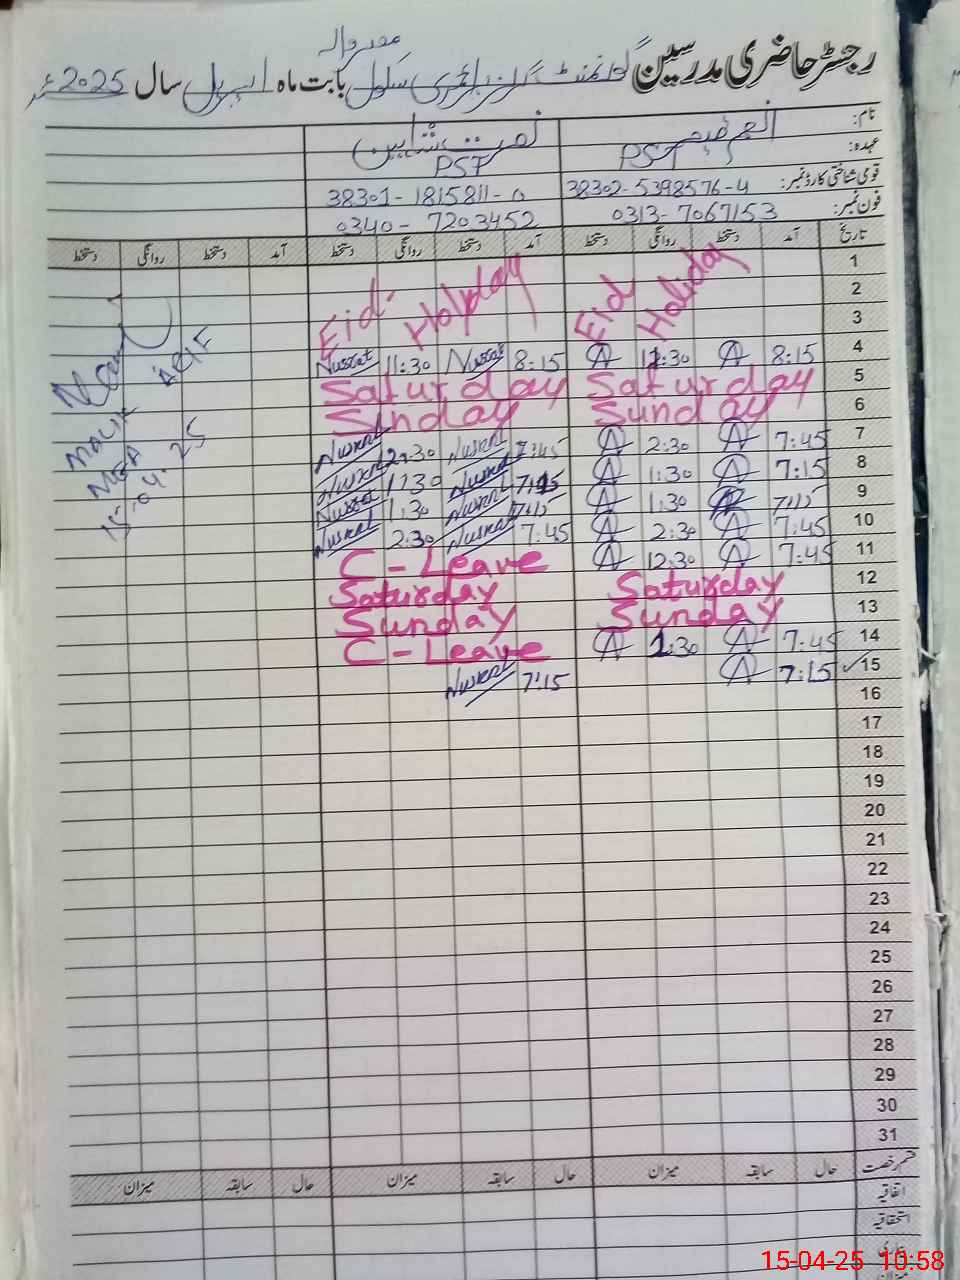 معروالہ
رجسٹر حاضری مدرسین گورنمنٹ گرلز پرائمری سکول بابت ماہ اپریل سال 2025ء
نام: انعم نصرت شاہین
عہدہ: PST PST
قومی شناختی کارڈ نمبر: 38302-5398576-4 38301-1815811-0
فون نمبر: 0313-7067153 0340-7203452
تاریخ آمد دستخط روانگی دستخط آمد دستخط روانگی دستخط آمد دستخط روانگی دستخط
1
2 Eid Holiday Eid Holyday
3
4 8:15 A 11:30 A 8:15 Nusrat 11:30 Nusrat
5 Saturday Saturday
6 Sunday Sunday
7 7:45 A 2:30 A 7:45 Nusrat 2:30 Nusrat
8 7:15 A 1:30 A 7:15 Nusrat 1:30 Nusrat
9 7:15 A 1:30 A 7:15 Nusrat 1:30 Nusrat
10 7:45 A 2:30 A 7:45 Nusrat 2:30 Nusrat
11 7:45 A 12:30 A C-Leave
12 Saturday Saturday
13 Sunday Sunday
14 7:45 A 1:30 A C-Leave
15 7:15 A 7:15 Nusrat
16
17
18
19
20
21
22
23
24
25
26
27
28
29
30
31
MALIK ASIF
MEA
15-04-25
قسم رخصت حال سابقہ میزان حال سابقہ میزان حال سابقہ میزان
اتفاقیہ
استحقاقیہ
میزان
15-04-25 10:58